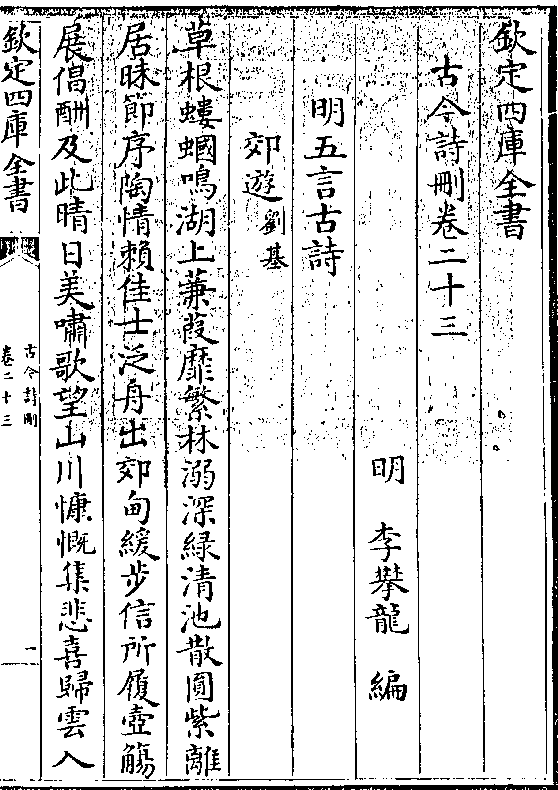 欽定四庫全書
古今詩刪卷二十三
明 李攀龍 編
明五言古詩
郊遊劉基
草根螻蟈鳴湖上蒹葭靡繁林溺深緑清池散圓紫離
居昧節序陶情賴佳士泛舟出郊甸緩步信所履壺觴
展倡酬及此晴日美嘯歌望山川慷慨集悲喜歸雲入
欽定四庫全書
古今詩刪
卷二十三
一